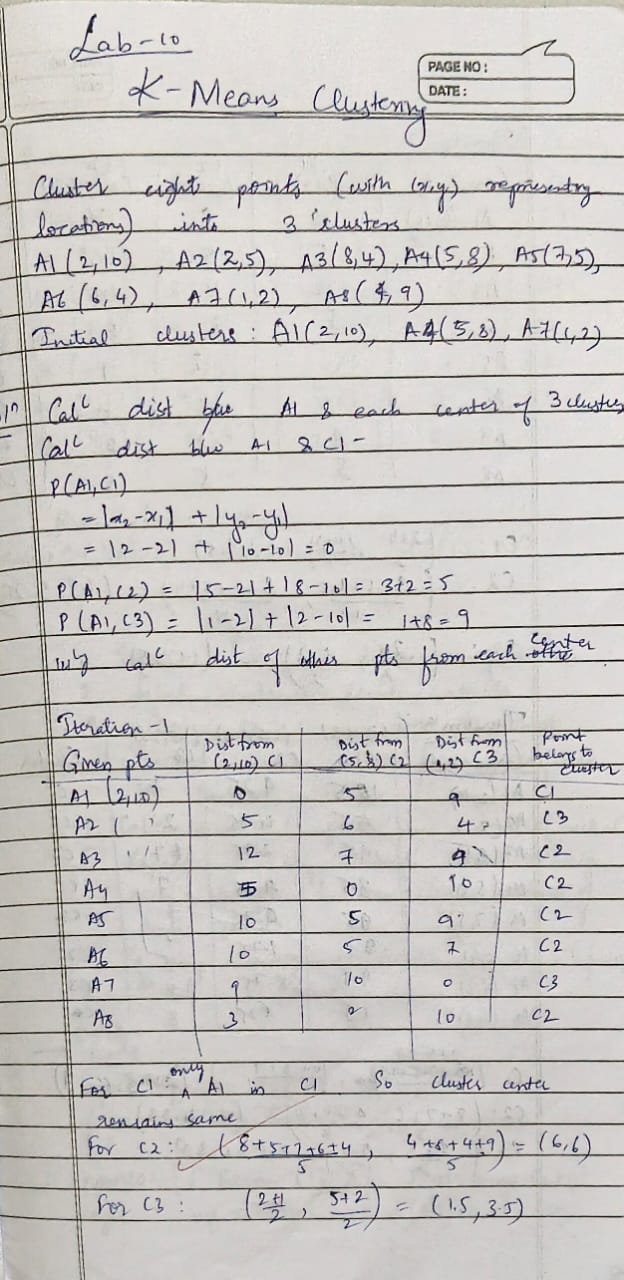 Lab-10
PAGE NO:
DATE:
K-Means Clustering
Cluster eight points (with (x,y) representing
locations) into 3 clusters
A1(2,10), A2(2,5), A3(8,4), A4(5,8), A5(7,5),
A6(6,4), A7(1,2), A8(4,9)
Initial clusters: A1(2,10), A4(5,8), A7(1,2)
Calc dist b/w A1 & each center of 3 clusters
Calc dist b/w A1 & C1-
P(A1,C1)
= |x2-x1| + |y2-y1|
= |2-2| + |10-10| = 0
P(A1,C2) = |5-2| + |8-10| = 3+2=5
P(A1,C3) = |1-2| + |2-10| = 1+8=9
calc dist of other pts from each center
Iteration-1
Given pts Dist from (2,10) C1 Dist from (5,8) C2 Dist from (1,2) C3 Point belongs to cluster
A1 (2,10) 0 5 9 C1
A2 5 6 4 C3
A3 12 7 9 C2
A4 5 0 10 C2
A5 10 5 9 C2
A6 10 5 7 C2
A7 9 10 0 C3
A8 3 2 10 C2
For C1: only A1 in C1. So cluster center
remains same
For C2: (8+5+7+6+4/5, 4+8+4+9/5) = (6,6)
For C3: (2+1/2, 5+2/2) = (1.5, 3.5)